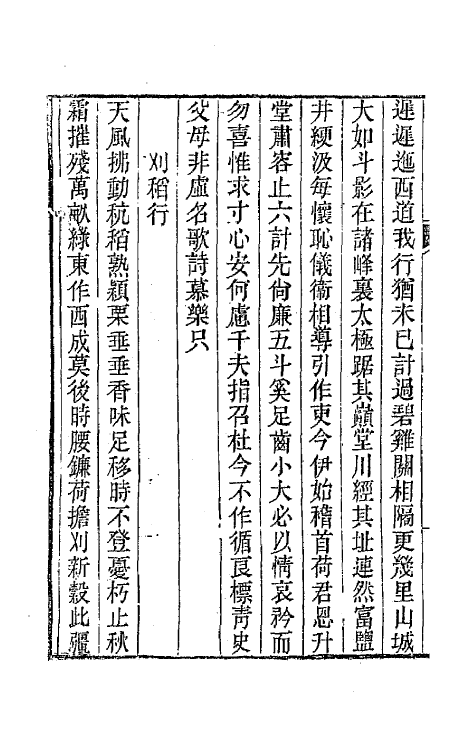 遲遲迤西道我行猶未已計過碧雞關相隔更幾里山城
大如斗影在諸峰裏太極踞其巔堂川經其址連然富鹽
井綆汲每懷恥儀衞相導引作吏今伊始稽首荷君恩升
堂肅容止六計先尙廉五斗奚足齒小大必以情哀矜而
勿喜惟求寸心安何慮千夫指召杜今不作循良標靑史
父母非虛名歌詩慕樂只
刈稻行
天風拂動秔稻熟穎栗垂垂香味足移時不登憂朽止秋
霜摧殘萬畝綠東作西成莫後時腰鐮荷擔刈新穀此疆